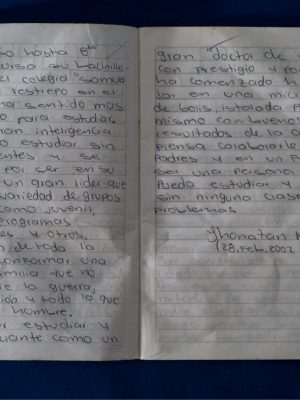 hasta 8vo
su bachille-
el colegio "samue
restrepo en el
sentido mas
para estudiar
inteligencia
estudiar sin
y se
por ser en su
un gran lider que
variedad de grupos
como juvenil
programas
y otros.
de toda la
conformar una
que no
la guerra,
y todo lo que
hombre.
estudiar y
como un
gran "doctor de
con prestigio y
ha comenzado
lar en una mic
de bolis, istalada
mismo con bueno
resultados de la
piensa colaborarle
padres y en un
ser una persona
pueda estudiar y
sin ninguna clase
problemas
Jhonatan
(28, Feb, 2002